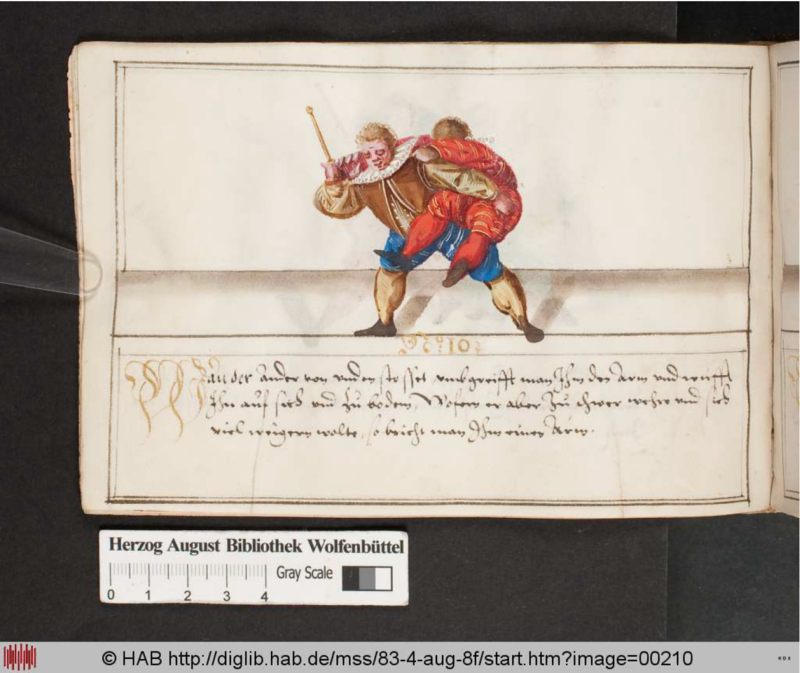 No: 10:
Wan der Ander von unden stosset, umbgreifft man Ihm den Arm und wirfft
Ihn auf sich und zu boden, Wofern er aber zu schwer were und sich
viel weigern wolte, so bricht man Ihm einen Arm.
Herzog August Bibliothek Wolfenbüttel
Gray Scale
0 1 2 3 4
© HAB http://diglib.hab.de/mss/83-4-aug-8f/start.htm?image=00210